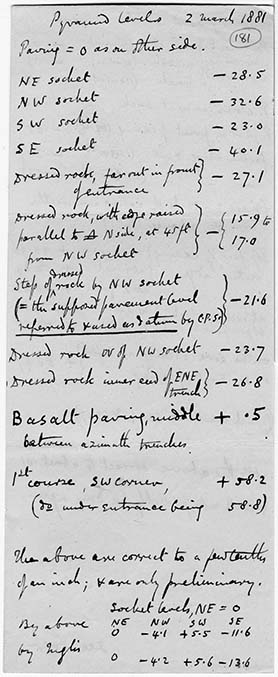 Pyramid levels 2 March 1881
181
Paving = 0 as on other side.
NE socket - 28.5
NW socket - 32.6
SW socket - 23.0
SE socket - 40.1
Dressed rock, far out in front
of entrance } - 27.1
Dressed rock, with edge raised
parallel to N side, at 45 ft
from NW socket } - { 15.9 to
17.0
Step of dressed rock by NW socket
(= the supposed pavement level
referred to & used as datum by C.P.S.) } - 21.6
Dressed rock ov of NW socket - 23.7
Dressed rock inner end of ENE
trench } - 26.8
Basalt paving, middle + .5
between azimuth trenches.
1st course, SW corner, + 58.2
(do under entrance being 58.8)
The above are correct to a few tenths
of an inch; & are only preliminary.
Socket levels, NE = 0
NE NW SW SE
By above 0 -4.1 +5.5 -11.6
by Inglis 0 -4.2 +5.6 -13.6